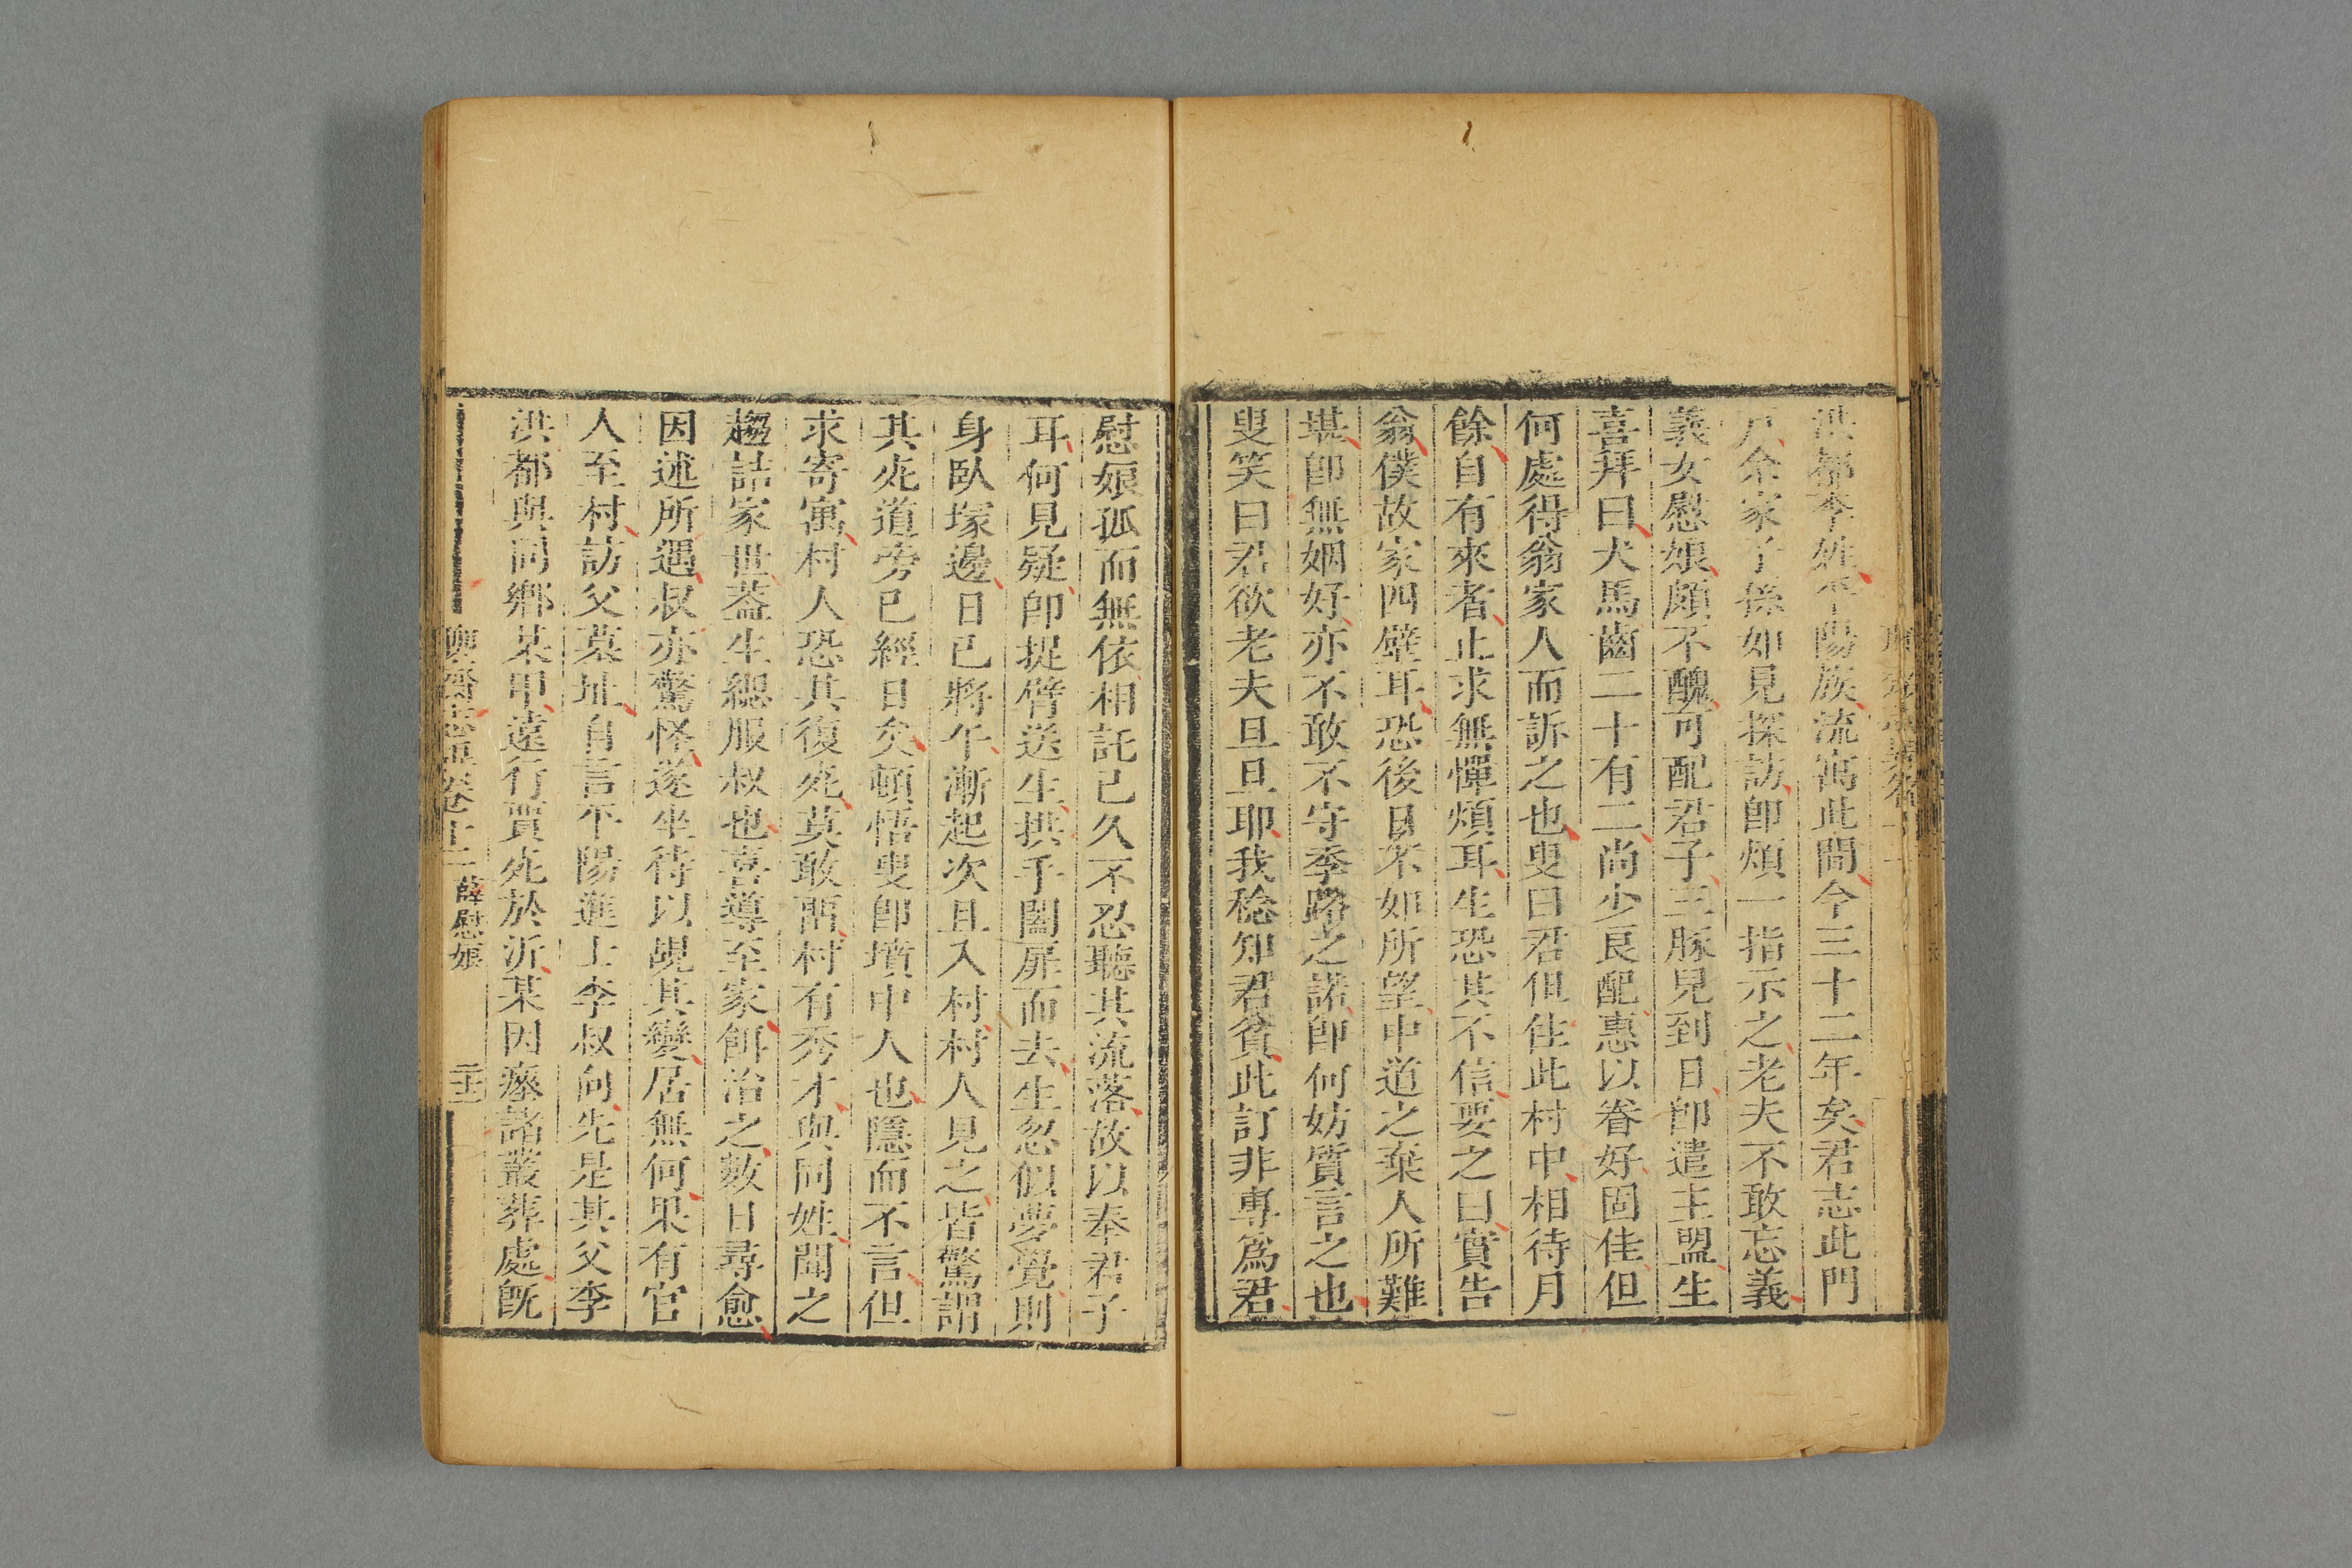 洪都李姓平陽族流寓此間今三十二年矣君志此門
戸余家子孫如見探訪即煩一指示之老夫不敢忘義
義女慰娘頗不醜可配君子三豚兒到日即遣主盟生
喜拜曰犬馬齒二十有二尚少良配惠以眷好固佳但
何處得翁家人而訴之也叟曰君但住此村中相待月
餘自有來者止求無憚煩耳生恐其不信要之曰實告
翁僕故家四壁耳恐後日不如所望中道之棄人所難
堪即無姻好亦不敢不守季路之諾即何妨質言之也
叟笑曰君欲老夫旦旦耶我稔知君貧此訂非專為君
慰娘孤而無依相託已久不忍聽其流落故以奉君子
耳何見疑即捉臂送生拱手闔扉而去生忽似夢覺則
身臥塚邊日已將午漸起次且入村村人見之皆驚謂
其死道旁已經日矣頓悟叟即墳中人也隱而不言但
求寄寓村人恐其復死莫敢留村有秀才與同姓聞之
趨詰家世蓋生緦服叔也喜導至家餌治之數日尋愈
因述所遇叔亦驚怪遂坐待以覘其變居無何果有官
人至村訪父墓址自言平陽進士李叔向先是其父李
洪都與同鄉某甲遠行賈死於沂某因瘞諸叢葬處旣
聊齋志異卷十二 薛慰娘